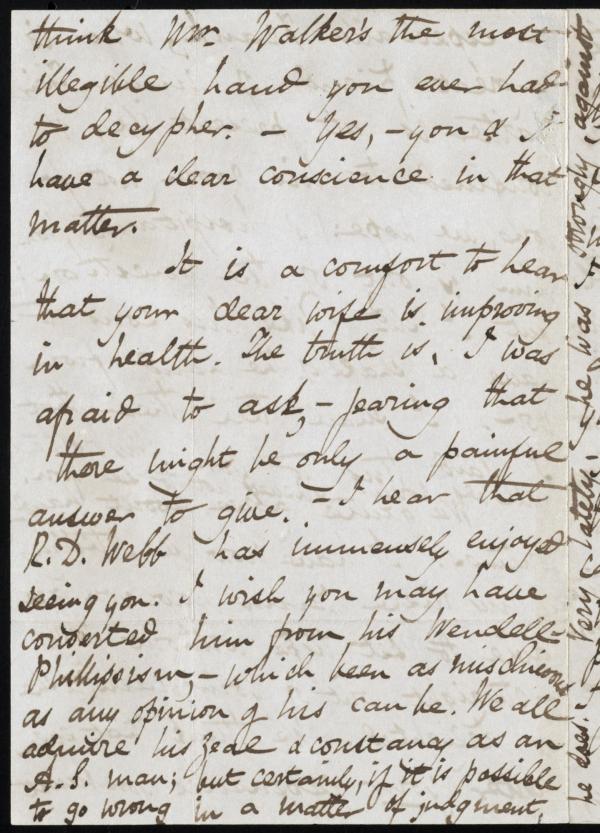 think Mr. Walker's the most
illegible hand you ever had
to decypher. - Yes, - you & I
have a clear conscience in that
matter.
It is a comfort to hear
that your dear wife is improving
in health. The truth is, I was
afraid to ask, - fearing that
there might be only a painful
answer to give. - I hear that
R. D. Webb has immensely enjoyed
seeing you. I wish you may have
converted him from his Wendell-
Phillipsism, - which been as mischievous
as any opinion of his can be. We all
admire his zeal & constancy as an
A. S. man; but certainly, if it is possible
to go wrong in a matter of judgment,
he does.
very lately
he was strongly against